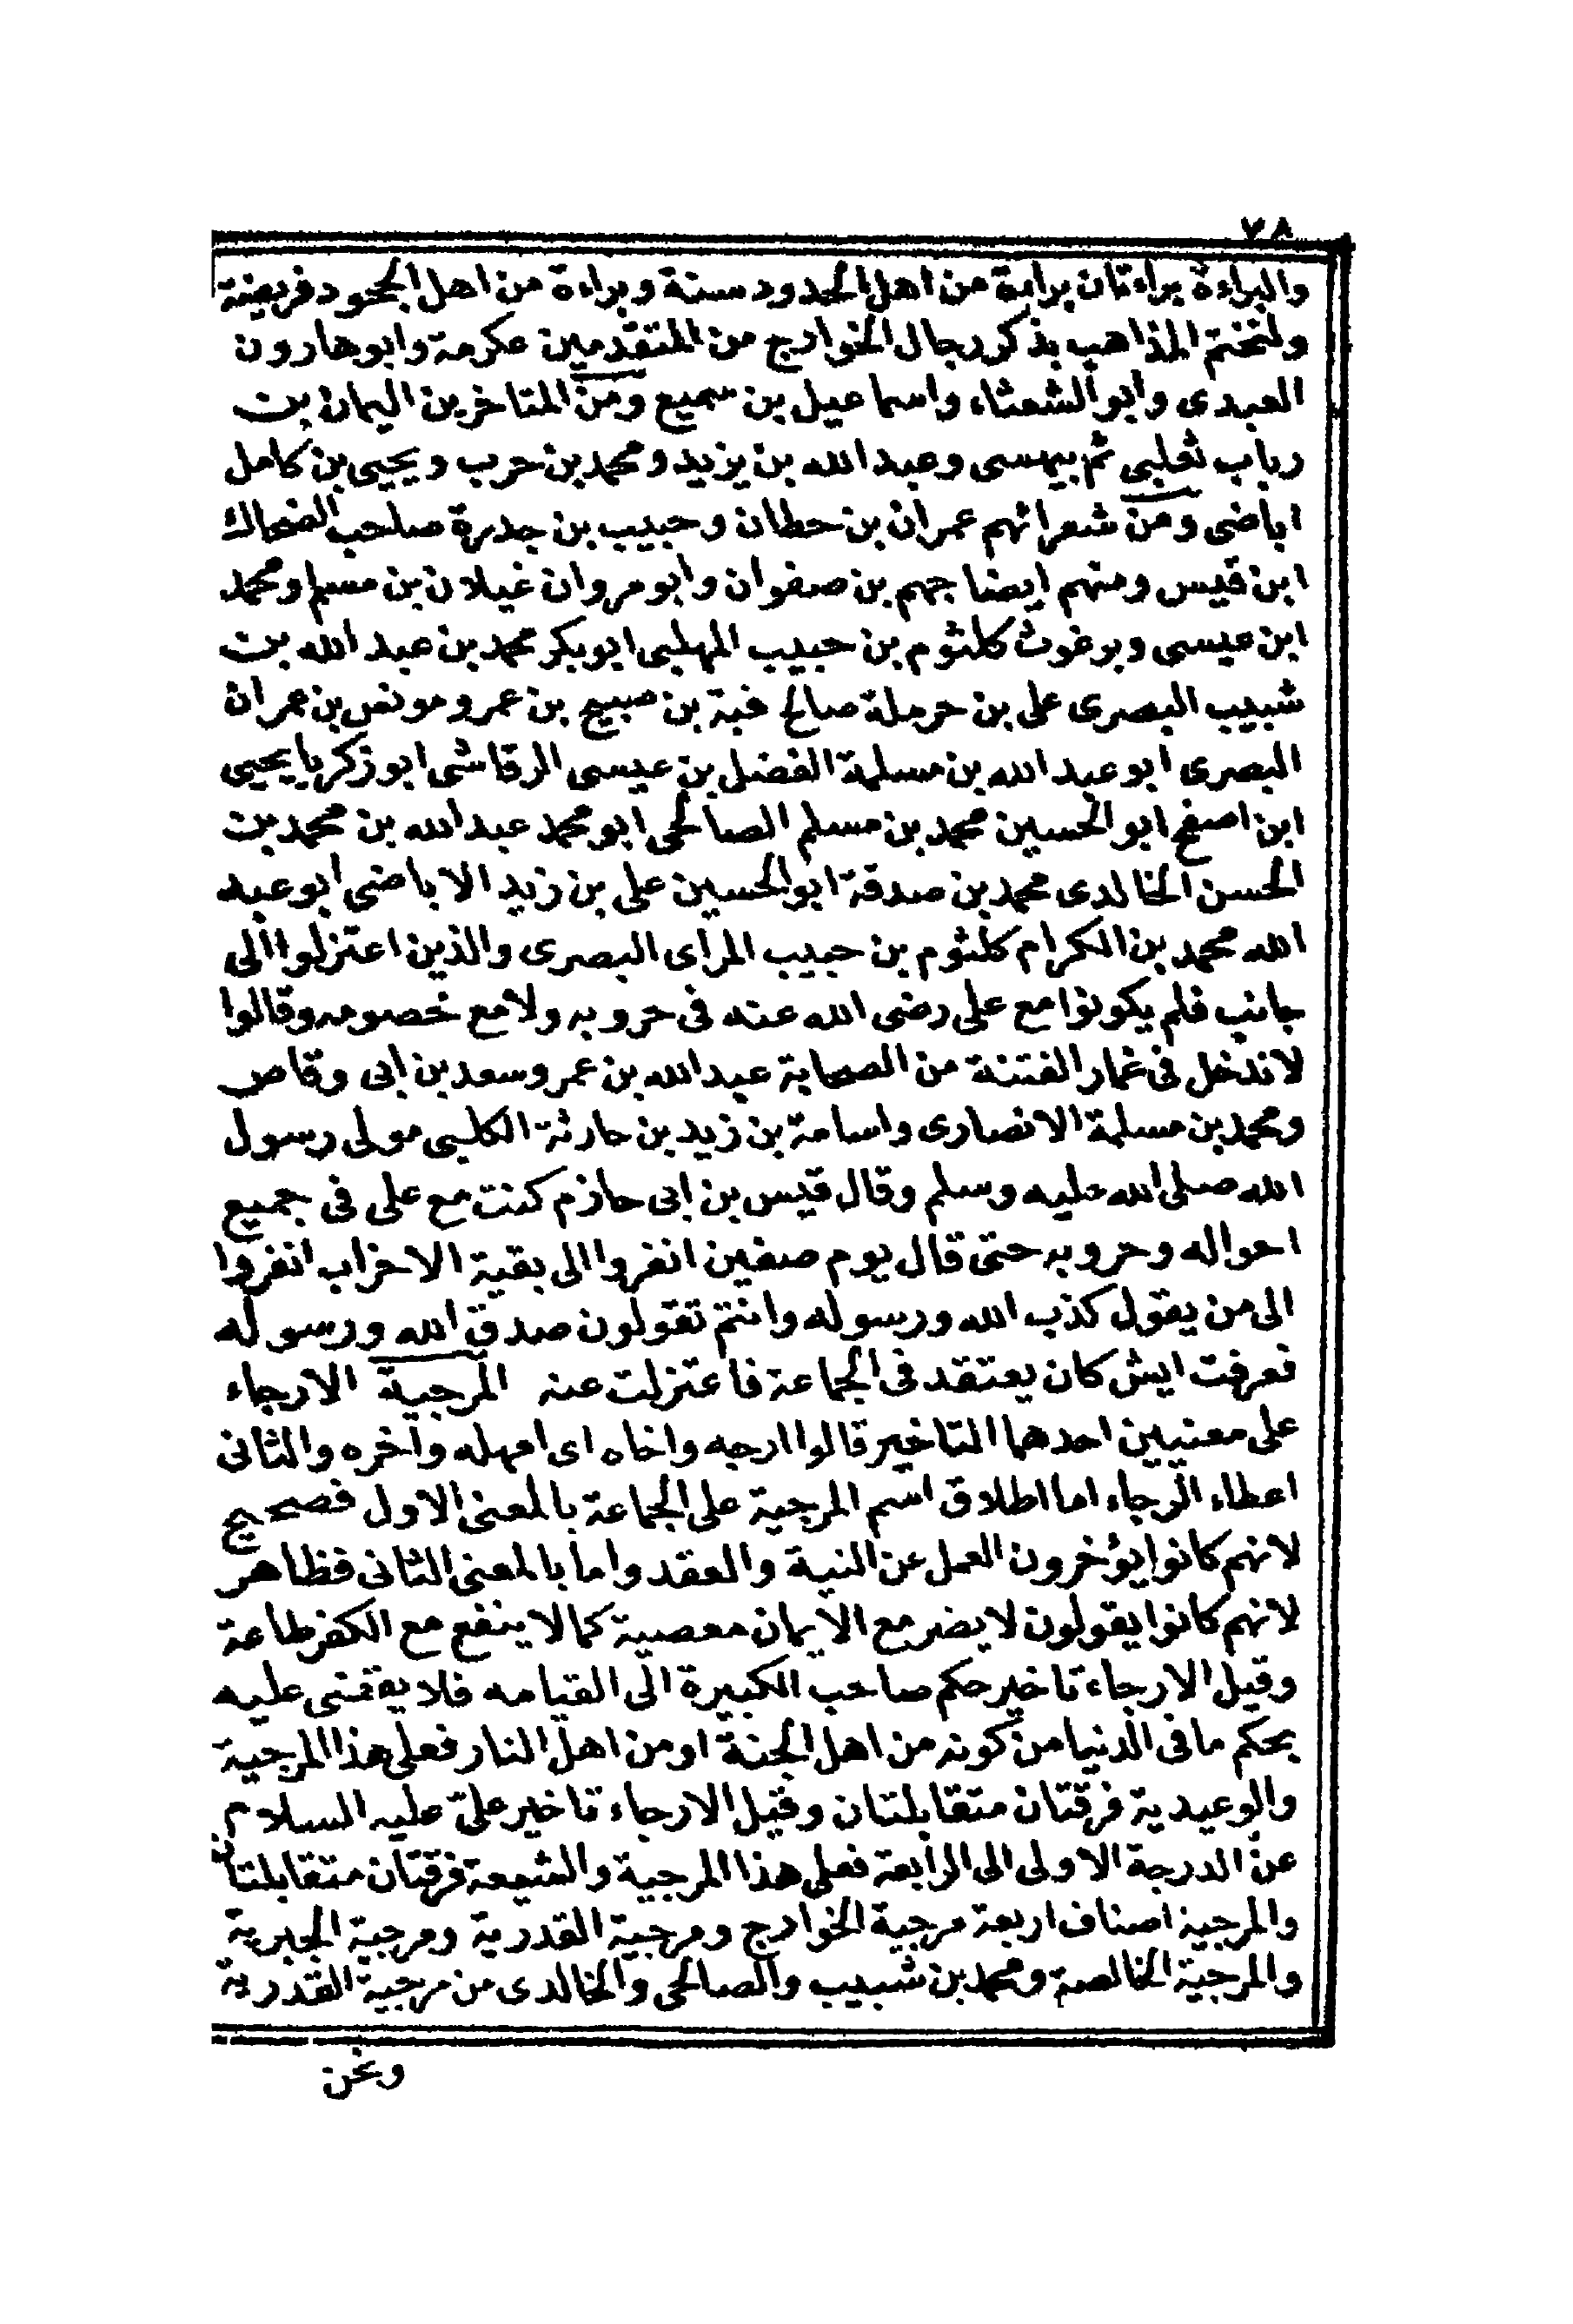 ٧٨
والبراءة براءتان براءة من اهل الحدود سنة وبراءة من اهل الجحود فريضة
ولنختم المذاهب بذكر رجال الخوارج من المتقدمين عكرمة وابو هارون
العبدى وابو الشعثاء واسماعيل بن سميع ومن المتاخرين اليمان بن
رباب ثعلبى ثم بيهسى وعبد الله بن يزيد ومحمد بن حرب ويحيى بن كامل
اباضى ومن شعرائهم عمران بن حطان وحبيب بن جدرة صاحب الضحاك
ابن قيس ومنهم ايضا جهم بن صفوان وابو مروان غيلان بن مسلم ومحمد
ابن عيسى وبرغوث كلثوم بن حبيب المهلبى ابو بكر محمد بن عبد الله بن
شبيب البصرى على بن حرملة صالح قبة بن صبيح بن عمرو مونس بن عمران
البصرى ابو عبد الله بن مسلمة الفضل بن عيسى الرقاشى ابو زكريا يحيى
ابن اصفح ابو الحسين محمد بن مسلم الصالحى ابو محمد عبد الله بن محمد بن
الحسن الخالدى محمد بن صدقة ابو الحسين على بن زيد الاباضى ابو عبد
الله محمد بن الكرام كلثوم بن حبيب المراى البصرى والذين اعتزلوا الى
جانب فلم يكونوا مع على رضى الله عنه فى حروبه ولا مع خصومه وقالوا
لا ندخل فى غمار الفتنة من الصحابة عبد الله بن عمر وسعد بن ابى وقاص
ومحمد بن مسلمة الانصارى واسامة بن زيد بن حارثة الكلبى مولى رسول
الله صلى الله عليه وسلم وقال قيس بن ابى حازم كنت مع على فى جميع
احواله وحروبه حتى قال يوم صفين انفروا الى بقية الاحزاب انفروا
الى من يقول كذب الله ورسوله وانتم تقولون صدق الله ورسوله
فعرفت ايش كان يعتقد فى الجماعة فاعتزلت عنه المرجية الارجاء
على معنيين احدهما التاخير قالوا ارجه واخاه اى امهله وآخره والثانى
اعطاء الرجاء اما اطلاق اسم المرجية على الجماعة بالمعنى الاول فصحيح
لانهم كانوا يؤخرون العمل عن النية والعقد واما بالمعنى الثانى فظاهر
لانهم كانوا يقولون لا يضر مع الايمان معصية كما لا ينفع مع الكفر طاعة
وقيل الارجاء تاخير حكم صاحب الكبيرة الى القيامه فلا يقضى عليه
بحكم ما فى الدنيا من كونه من اهل الجنة او من اهل النار فعلى هذا المرجية
والوعيدية فرقتان متقابلتان وقيل الارجاء تاخير علىّ عليه السلام
عن الدرجة الاولى الى الرابعة فعلى هذا المرجية والشيعة فرقتان متقابلتان
والمرجية اصناف اربعة مرجية الخوارج ومرجية القدرية ومرجية الجبرية
والمرجية الخالصة ومحمد بن شبيب والصالحى والخالدى من مرجية القدرية
ونحن